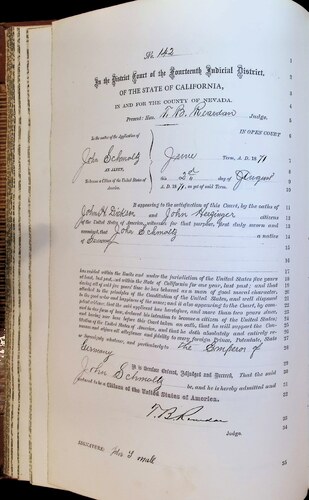 No 142
In the District Court of the Fourteenth Judicial District,
OF THE STATE OF CALIFORNIA,
IN AND FOR THE COUNTY OF NEVADA.
Present: Hon. T. B. Reardan Judge.
In the matter of the Application of
IN OPEN COURT
John Schmoltz
AN ALIEN,
To become a Citizen of the United States of America.
June Term, A. D. 1871
this 2d day of August
A. D. 1871, as yet of said Term.
It appearing to the satisfaction of this Court, by the oaths of
John H. Dickson and John citizens
of the United States of America, witnesses for that purpose, first duly sworn and
examined, that John Schmoltz a native
of Germany
has resided within the limits and under the jurisdiction of the United States five years
at least, last past, and within the State of California for one year, last past; and that
during all of said five years' time he has behaved as a man of good moral character,
attached to the principles of the Constitution of the United States, and well disposed
to the good order and happiness of the same; and it also appearing to the Court, by com-
petent evidence, that the said applicant has heretofore, and more than two years since,
and in due form of law, declared his intention to become a citizen of the United States;
and having now here before this Court taken an oath, that he will support the Con-
stitution of the United States of America, and that he doth absolutely and entirely re-
nounce and abjure all allegiance and fidelity to every foreign Prince, Potentate, State
or Sovereignty whatever, and particularly to the Emperor of
Germany
It is therefore Ordered, Adjudged and Decreed, That the said
John Schmoltz be, and is hereby admitted and
declared to be a Citizen of the United States of America.
T. B. Reardan
Judge.
SIGNATURE: